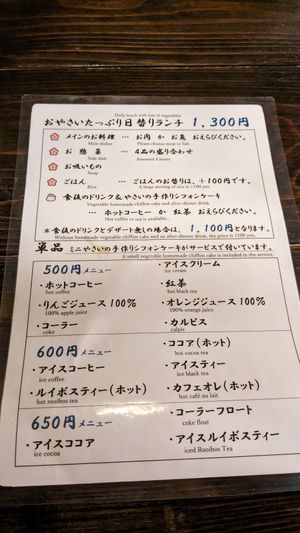 Daily lunch with lots of vegetables
おやさいたっぷり日替りランチ 1,300円
メインのお料理 … お肉 か お魚 おえらびください。
Main dishes Please choose meat or fish
お 惣 菜 … 4品の盛り合わせ
Side dish Assorted 4 items
お吸いもの
Soup
ごはん … ごはんのお替りは、+100円です。
Rice A large serving of rice is +100 yen
食後のドリンク&やさいの手作りシフォンケーキ
Vegetable homemade chiffon cake and after-dinner drink
… ホットコーヒー か 紅茶 おえらびください。
hot coffee or tea is available.
*食後のドリンクとデザート無しの場合は、1,100円となります。
Without handmade vegetable chiffon cake and after-dinner drink, the price is 1100 yen.
単品 ミニやさいの手作りシフォンケーキがサービスで付いています。
A small vegetable homemade chiffon cake is included in the service.
500円メニュー
・アイスクリーム
ice cream
・ホットコーヒー ・紅茶
hot coffee hot black tea
・りんごジュース 100% ・オレンジジュース 100%
100% apple juice 100% orange juice
・コーラー ・カルピス
coke calpis
600円メニュー ・ココア(ホット)
hot cocoa tea
・アイスコーヒー ・アイスティー
ice coffee ice black tea
・ルイボスティー(ホット) ・カフェオレ(ホット)
hot rooibos tea hot café au lait
650円メニュー ・コーラーフロート
coke float
・アイスココア ・アイスルイボスティー
ice cocoa iced Rooibos Tea